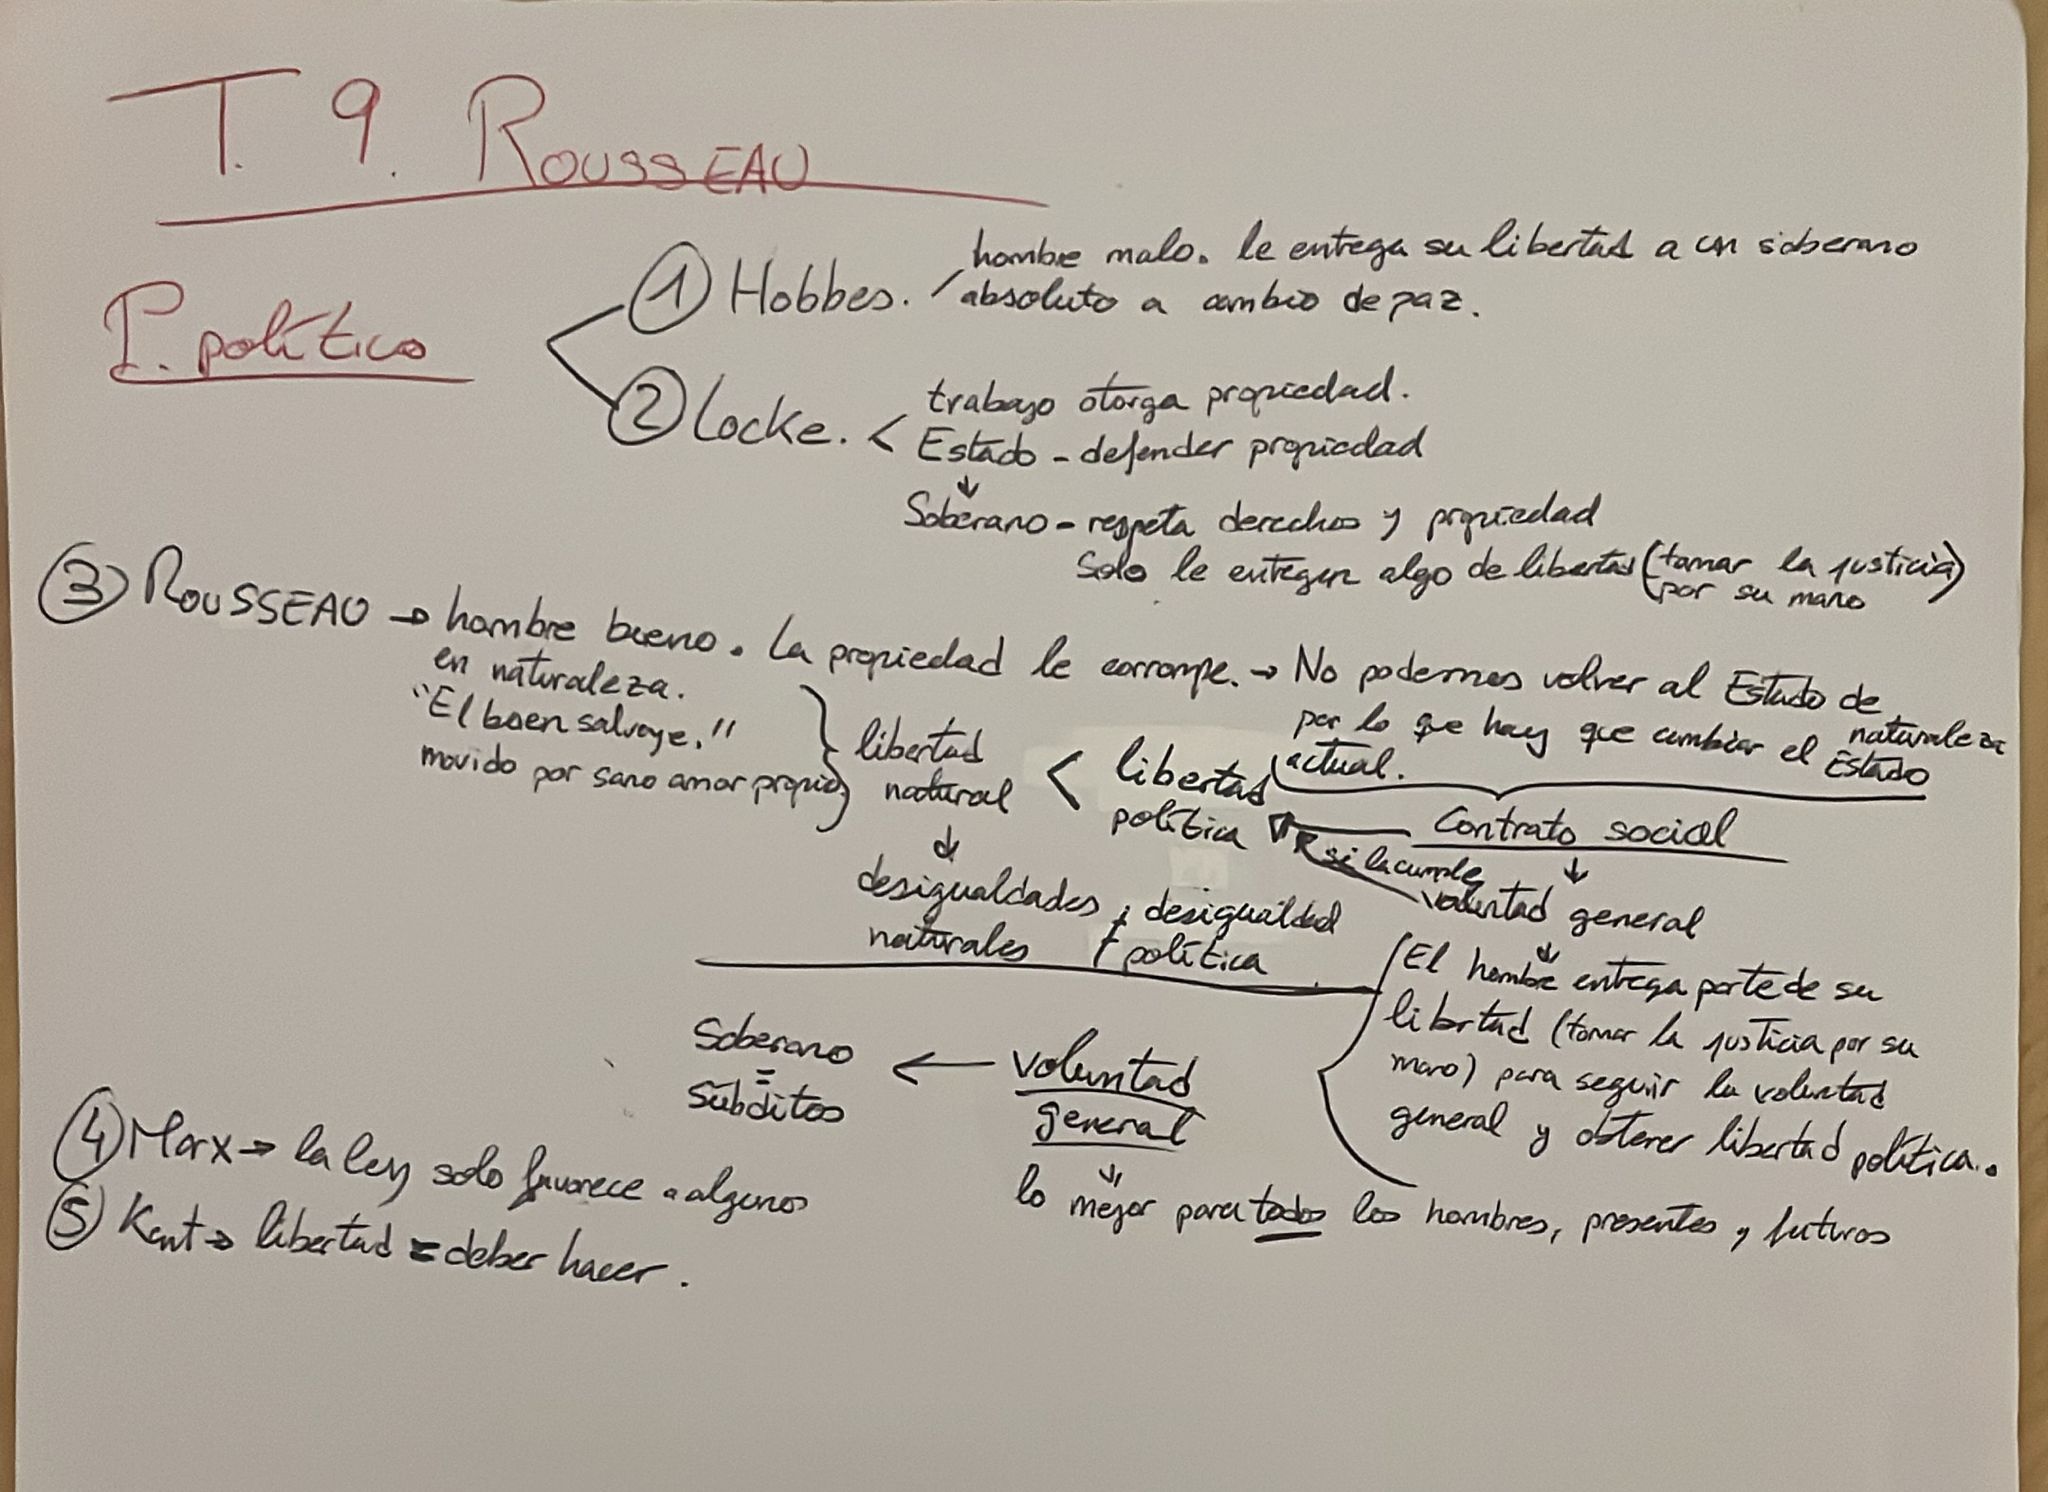 T. 9. ROUSSEAU
P. político
① Hobbes. hombre malo. le entrega su libertad a un soberano
absoluto a cambio de paz.
② Locke. < trabajo otorga propiedad.
Estado - defender propiedad
↓
Soberano - respeta derechos y propiedad
Solo le entregan algo de libertad (tomar la justicia
por su mano)
③ ROUSSEAU → hombre bueno. La propiedad le corrompe. → No podemos volver al Estado de
naturaleza
en naturaleza.
por lo que hay que cambiar el Estado
actual.
"El buen salvaje."
movido por sano amor propio
} libertad
natural
< libertad
política
Contrato social
si la cumple
↓
voluntad general
↓
desigualdades
naturales
≠ desigualdad
política
↓
El hombre entrega parte de su
libertad (tomar la justicia por su
mano) para seguir la voluntad
general y obtener libertad política.
Soberano
=
súbditos
← voluntad
general
↓
lo mejor para todos los hombres, presentes y futuros
④ Marx → la ley solo favorece a algunos
⑤ Kant → libertad = deber hacer.